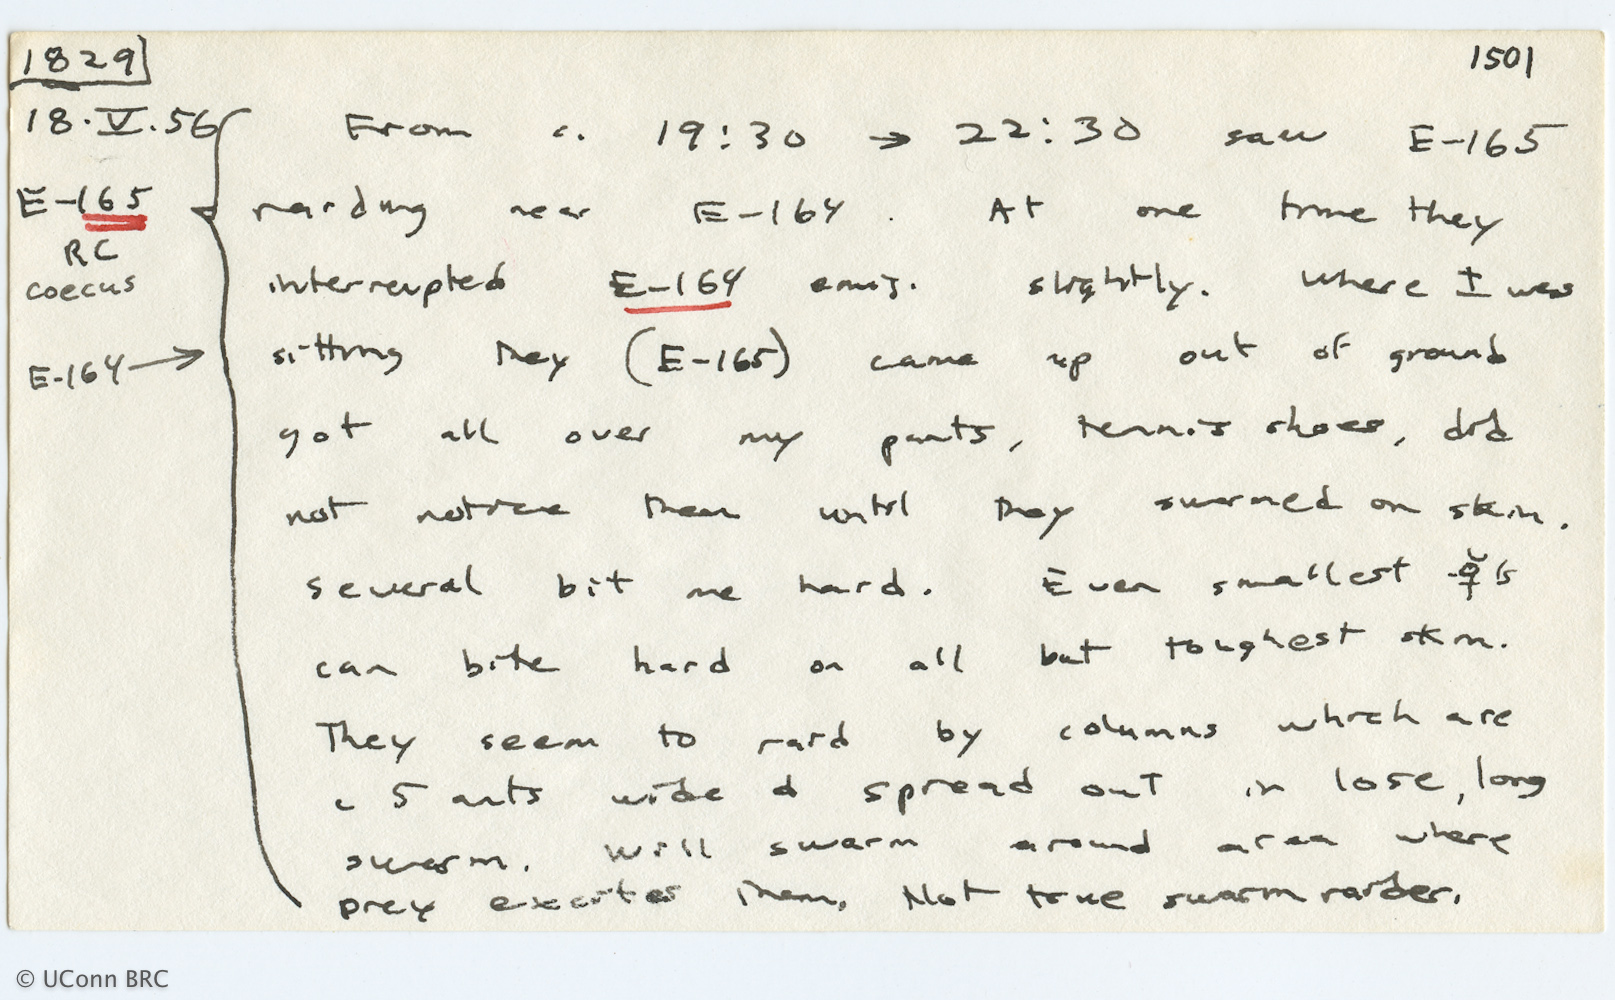 1829
1501
18.V.56
From c. 19:30 → 22:30 saw E-165
E-165
raiding near E-164. At one time they
RC
coecus
interrupted E-164 emig. slightly. Where I was
E-164 →
sitting they (E-165) came up out of ground
got all over my pants, tennis shoes, did
not notice them until they swarmed on skin.
Several bit me hard. Even smallest ☿s
can bite hard on all but toughest skin.
They seem to raid by columns which are
c 5 ants wide & spread out in lose, long
swarm. Will swarm around area where
prey excites them. Not true swarm raider.
© UConn BRC